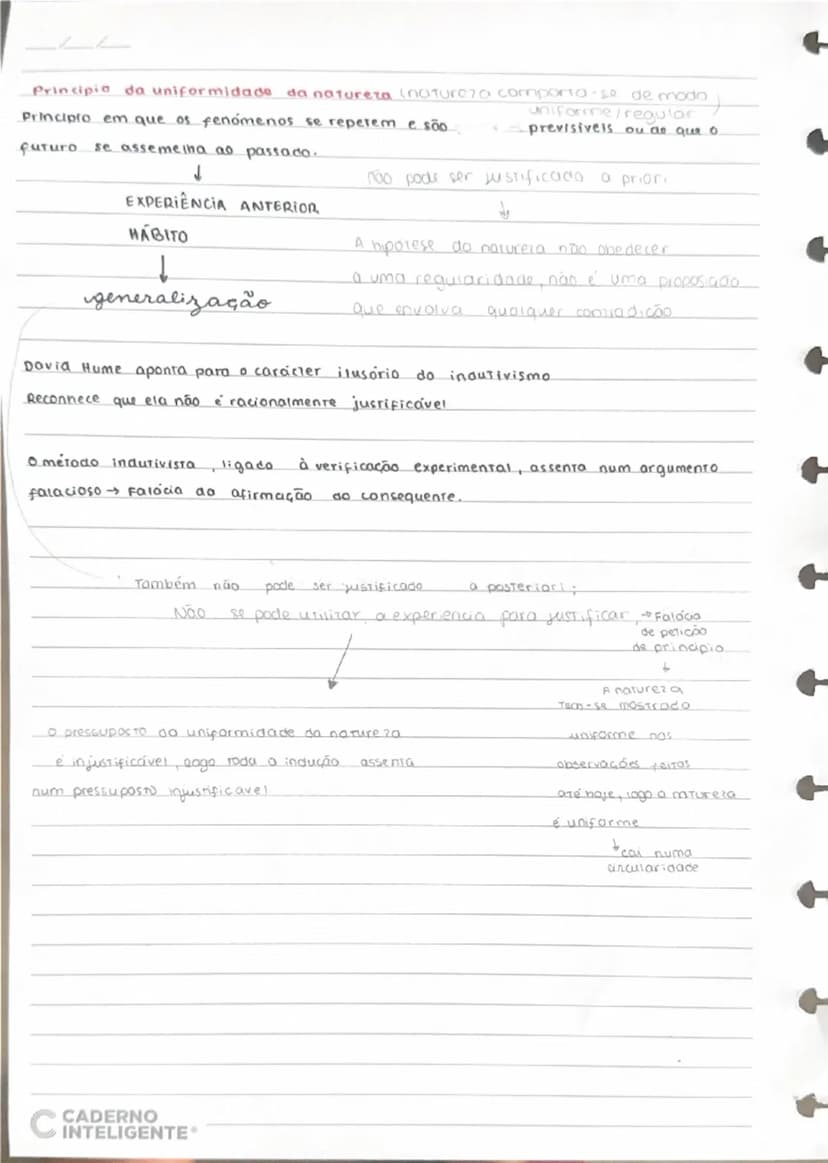 Princípio da uniformidade da natureza (natureza comporta-se de modo
uniforme/regular)
Princípio em que os fenómenos se repetem e são previsíveis ou de que o
futuro se assemelha ao passado.
↓
EXPERIÊNCIA ANTERIOR
HÁBITO
↓
generalização
não pode ser justificado a priori
↓
A hipótese da natureza não obedecer
a uma regularidade, não é uma proposição
que envolva qualquer contradição
David Hume aponta para o carácter ilusório do indutivismo
Reconhece que ela não é racionalmente justificável
O método indutivista, ligado à verificação experimental, assenta num argumento
falacioso → Falácia da afirmação do consequente.
Também não pode ser justificado a posteriori;
Não se pode utilizar a experiencia para justificar → Falácia
de petição
de princípio
↓
A natureza
tem-se mostrado
uniforme nas
observações feitas
até hoje, logo a natureza
é uniforme
↓ cai numa
circularidade
O pressuposto da uniformidade da natureza
é injustificável, logo toda a indução assenta
num pressuposto injustificável
CADERNO
INTELIGENTE®